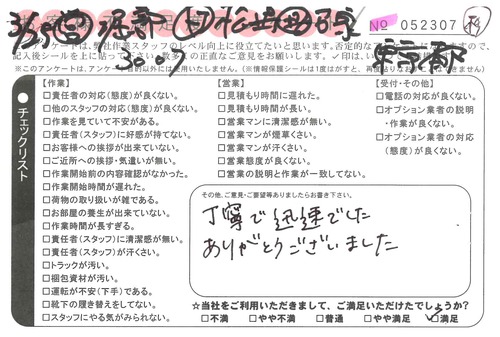 No 052307
アンケートは、弊社作業スタッフのレベル向上に役立てたいと思います。
記入後シールを上に貼って下さい。お客様の正直なご意見をお願いします。✓印は、
※このアンケートは、アンケート目的以外には使用いたしません。(※情報保護シールは1度はがすと、再度貼りなおすことはできません)
チェックリスト
【作業】
□責任者の対応(態度)が良くない。
□他のスタッフの対応(態度)が良くない。
□作業を見ていて不安がある。
□責任者(スタッフ)に好感が持てない。
□お客様への挨拶が出来ていない。
□ご近所への挨拶・気遣いが無い。
□作業開始前の内容確認がなかった。
□作業開始時間が遅れた。
□荷物の取り扱いが雑である。
□お部屋の養生が出来ていない。
□作業時間が長すぎる。
□責任者(スタッフ)に清潔感が無い。
□責任者(スタッフ)が汗くさい。
□トラックが汚い。
□梱包資材が汚い。
□運転が不安(下手)である。
□靴下の履き替えをしてない。
□スタッフにやる気がみられない。
【営業】
□見積もり時間に遅れた。
□見積もり時間が長い。
□営業マンに清潔感が無い。
□営業マンが煙草くさい。
□営業マンが汗くさい。
□営業態度が良くない。
□営業の説明と作業が一致してない。
【受付・その他】
□電話の対応が良くない。
□オプション業者の説明
・作業が良くない。
□オプション業者の対応
(態度)が良くない。
その他、ご意見・ご要望等ありましたらお書き下さい。
丁寧で迅速でした
ありがとうございました
☆当社をご利用いただきまして、ご満足いただけたでしょうか?
□不満 □やや不満 □普通 □やや満足 ☑満足